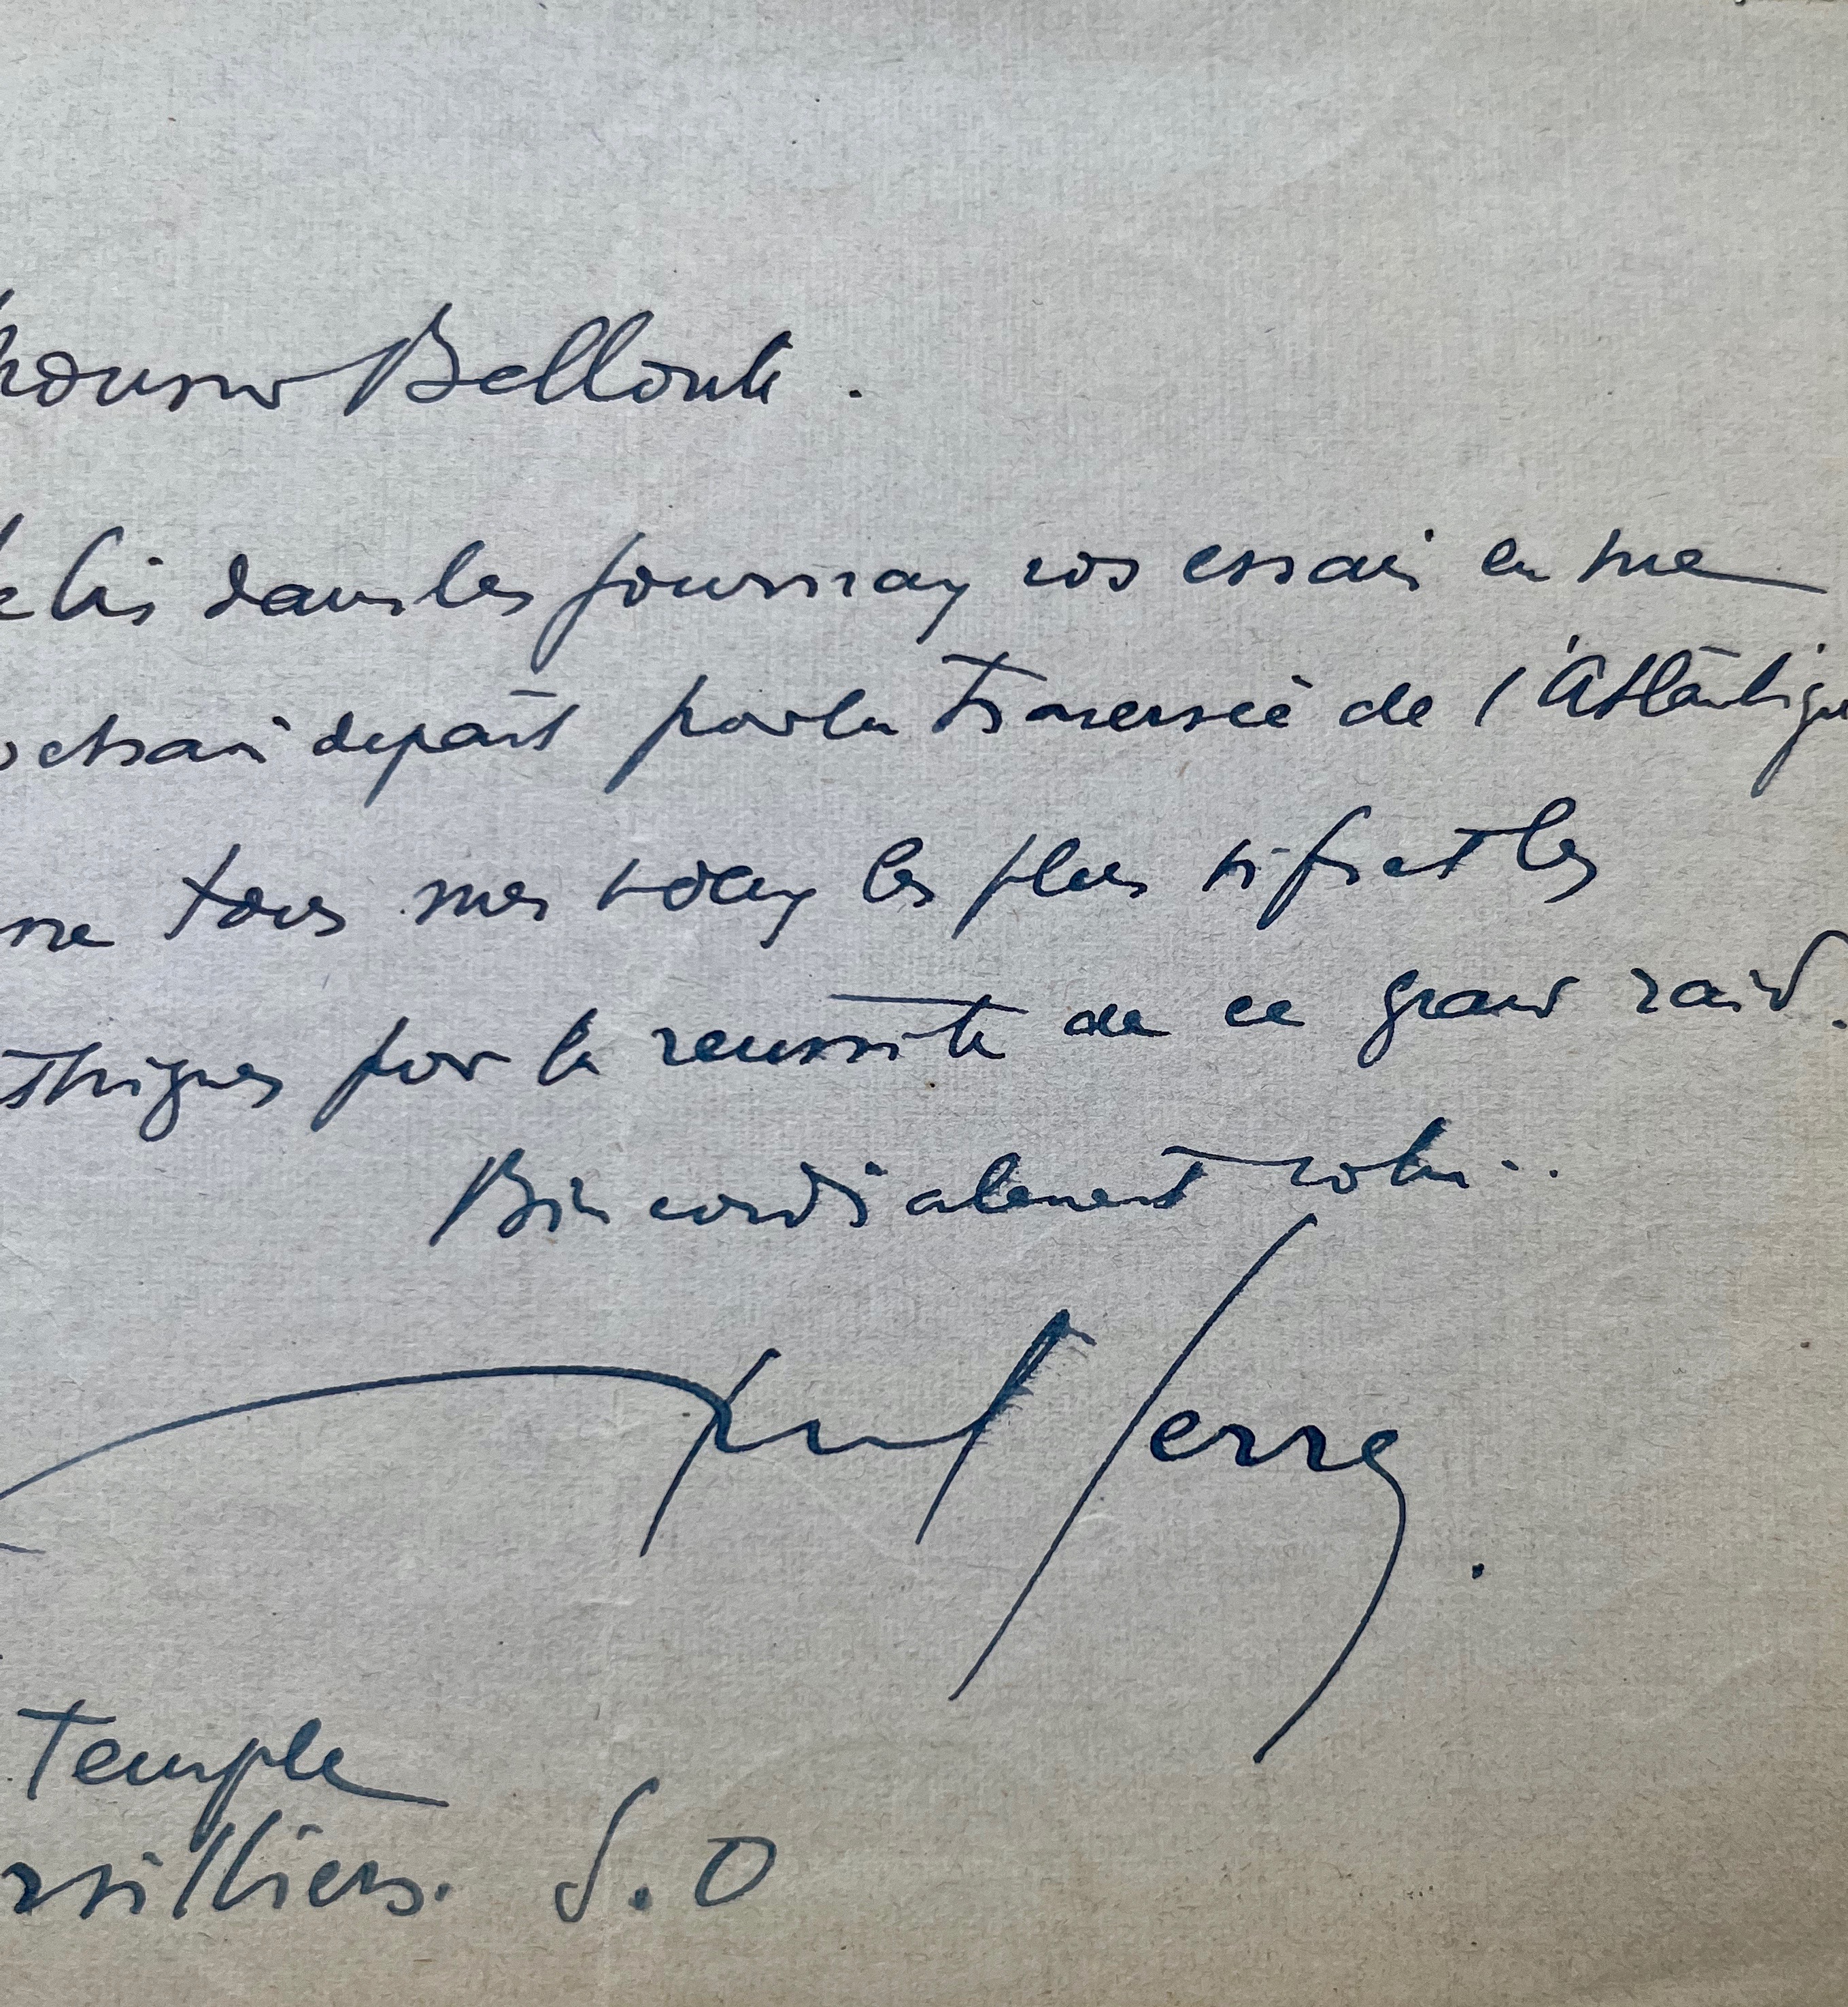 Bellonte.
lis dans les journaux vos essais en vue
depart pour la traversée de l'Atlantique
tous mes voeux les plus vifs et les
pour la reussite de ce grand raid.
Bien cordialement votre..
Temple
S.O